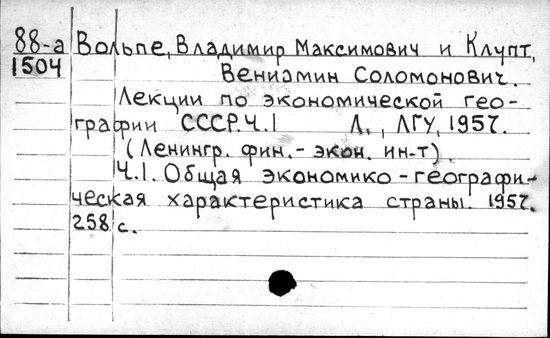 88-а Вольпе, Владимир Максимович и Клупт,
1504 Вениамин Соломонович.
Лекции по экономической гео-
графии СССР. Ч.1 Л., ЛГУ, 1957.
(Ленингр. фин.-экон. ин-т).
Ч.1. Общая экономико-географи-
ческая характеристика страны. 1957.
258 с.